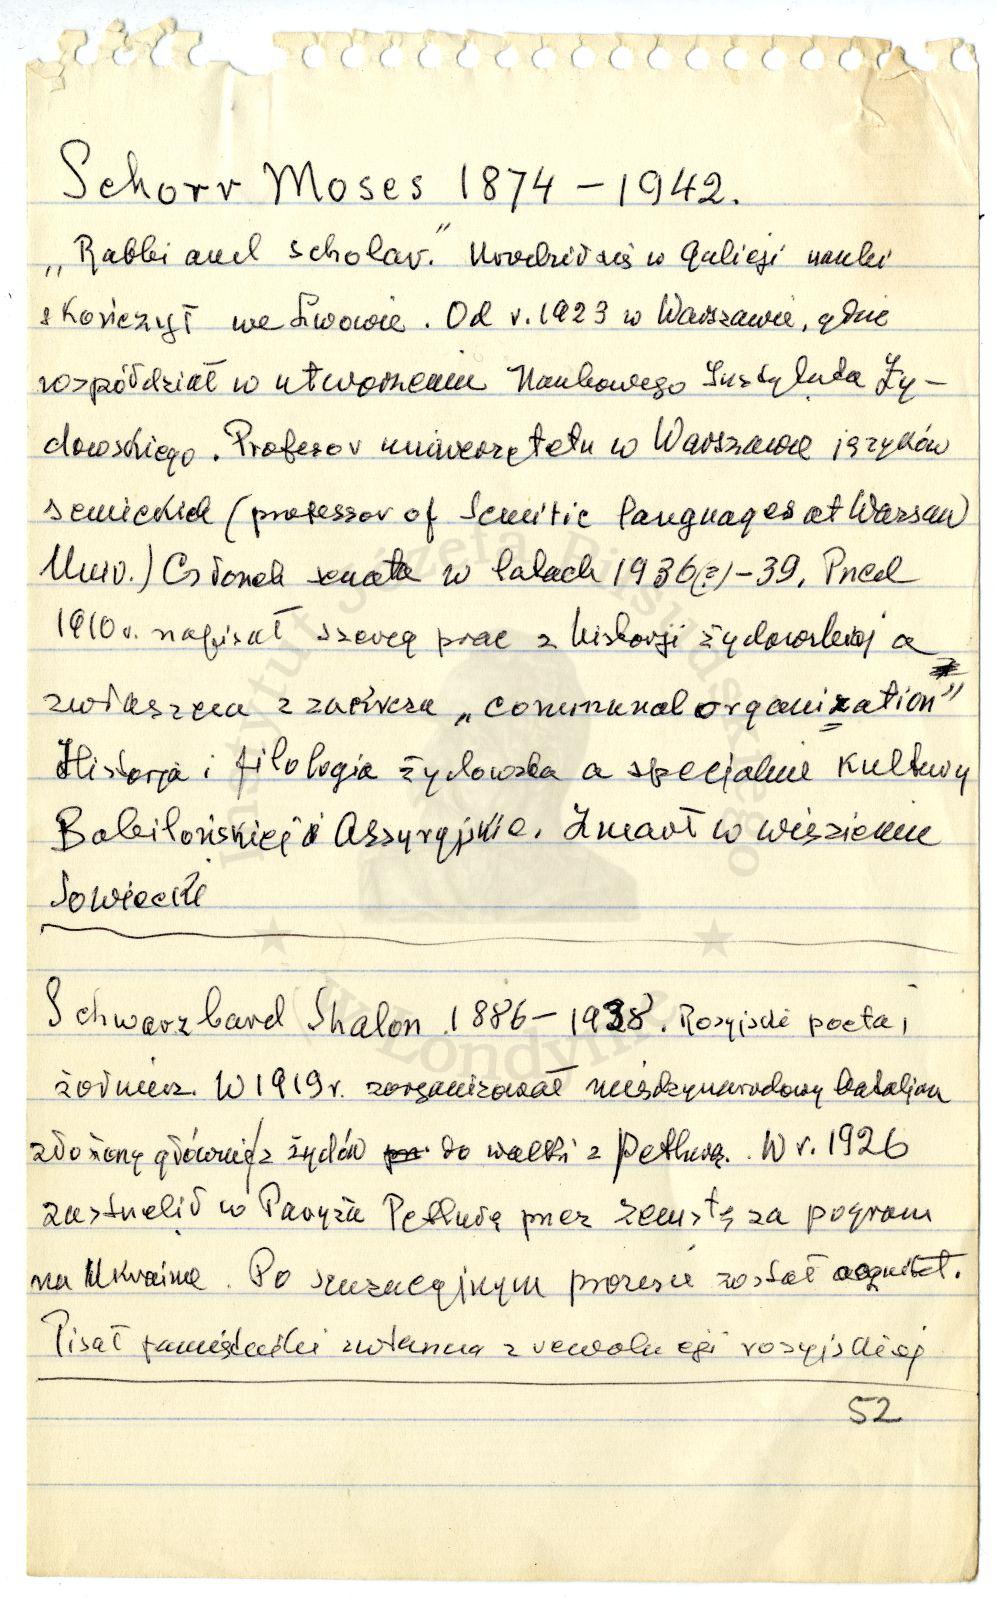 Schorr Moses 1874 – 1942.
„Rabbi and Scholar." Urodził się w Galicji nauki
skończył we Lwowie. Od r. 1923 w Warszawie, gdzie
wspóldział w utworzeniu Naukowego Instytutu Ży-
dowskiego. Profesor uniwersytetu w Warszawie języków
semickich (professor of Semitic languages at Warsaw
Univ.) Członek senatu w latach 1936(?)-39. Przed
1910 r. napisał szereg prac z historji żydowskiej a
zwłaszcza z zakresu „communal organization"
Historja i filologia żydowska a specjalnie kultury
Babilońskiej i Assyryjskie. Zmarł w więzieniu
Sowieckie
Schwarzbard Shalon 1886–1938. Rosyjski poeta i
żołnierz. W 1919 r. zorganizował międzynarodowy bataljon
złożony głównie z żydów do walki z Petlurą. W r. 1926
zastrzelił w Paryżu Petlurę przez zemstę za pogrom
na Ukrainie. Po senzacyjnym procesie został acquitet.
Pisał pamiętniki zwłaszcza z rewolucji rosyjskiej
52
Instytut Józefa Piłsudskiego
w Londynie